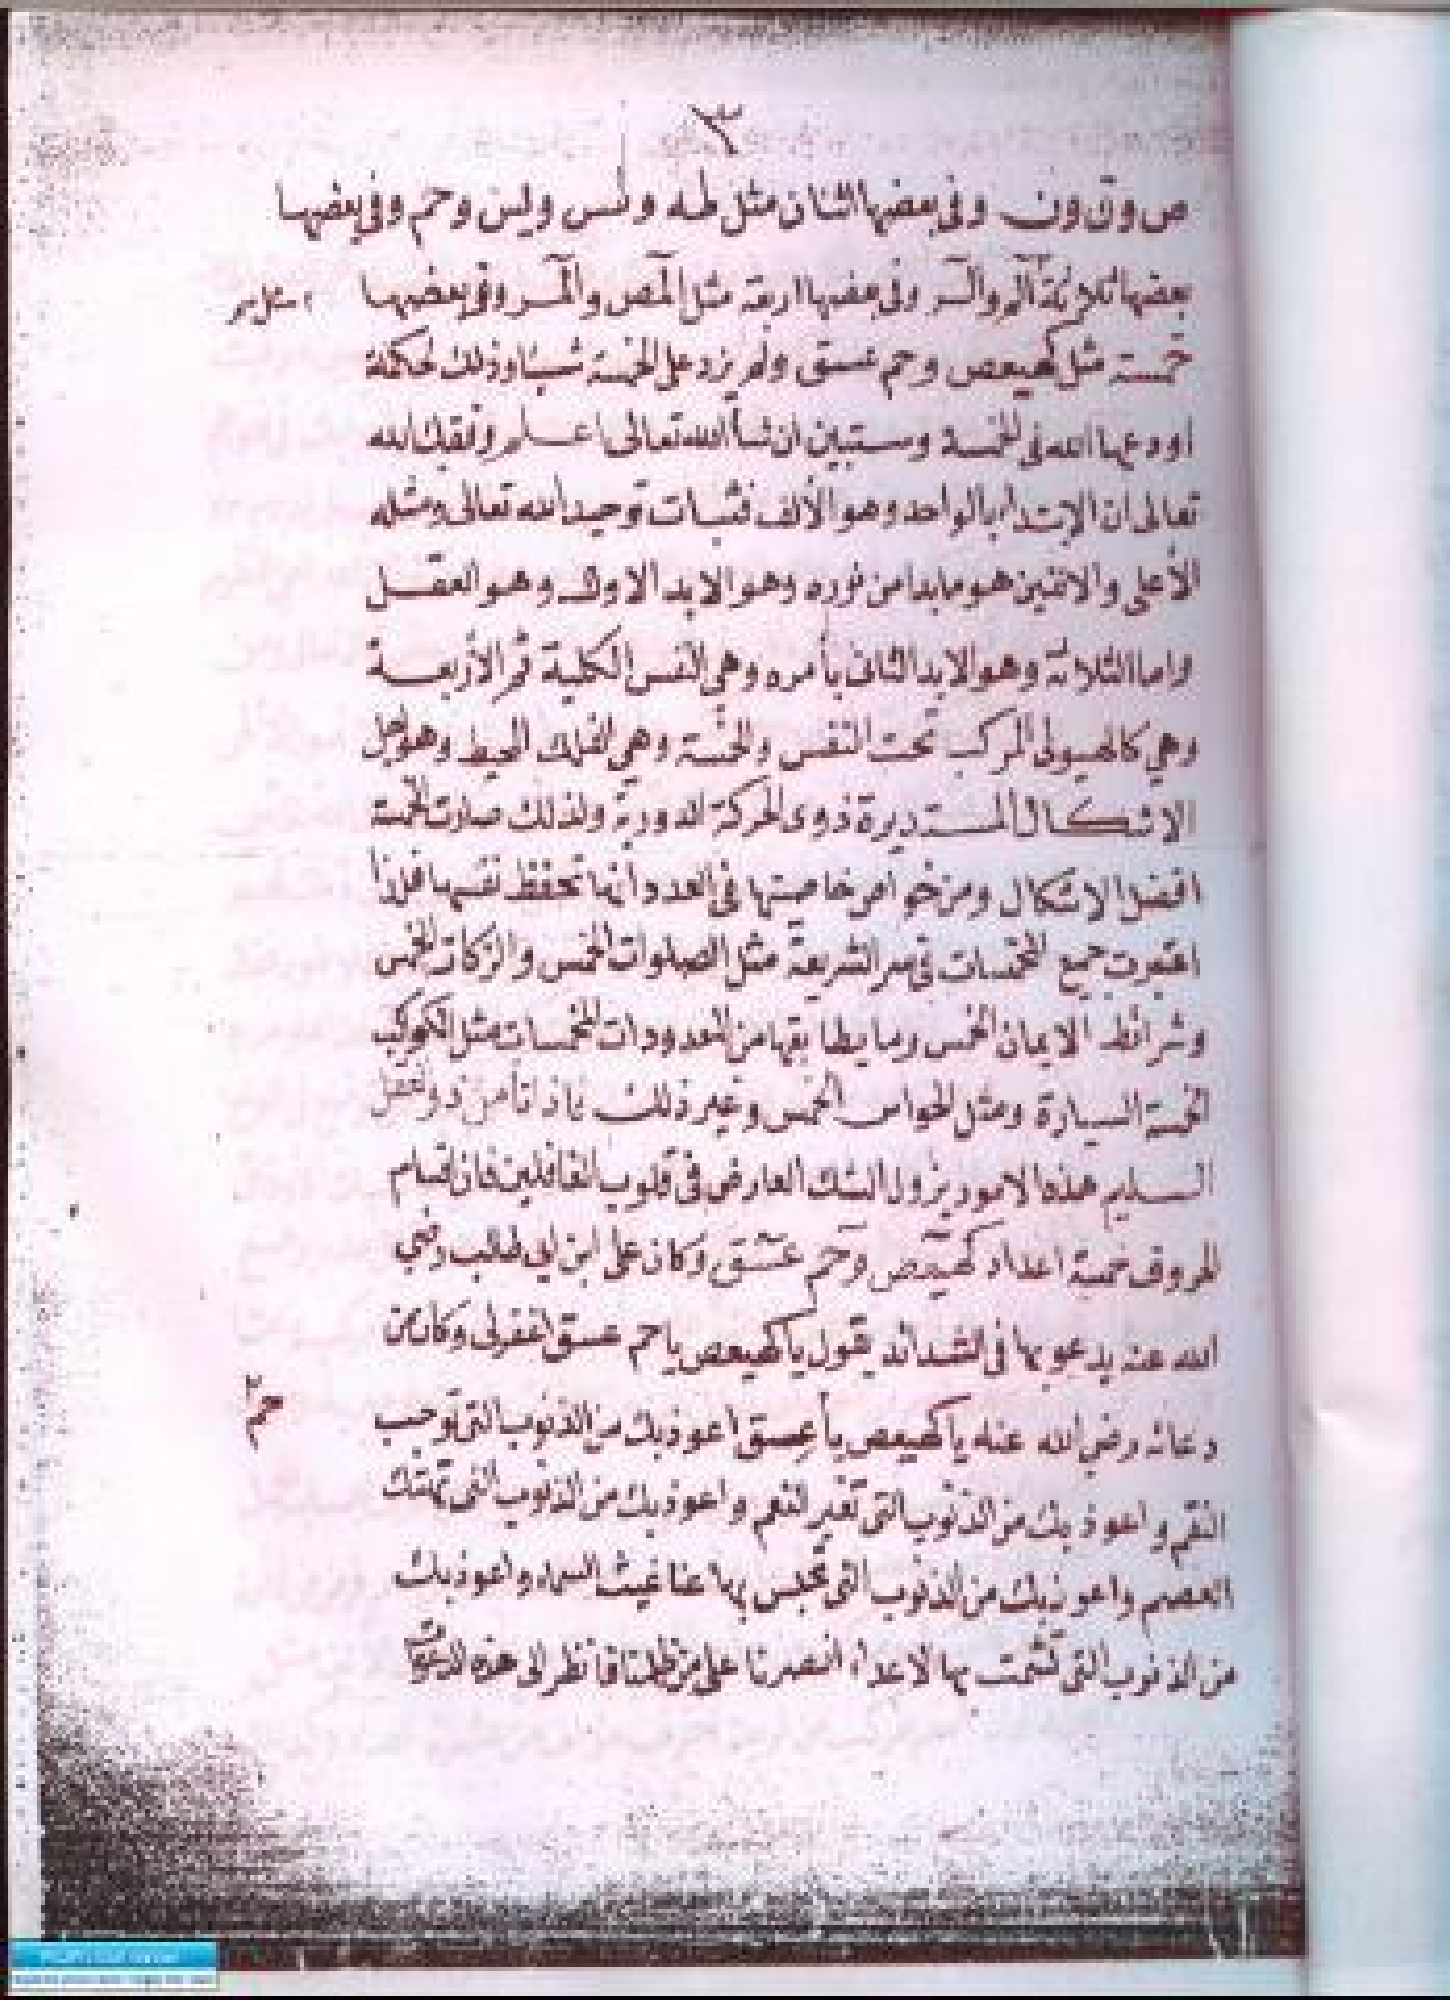 ٣
ص وق ون وفى بعضها اثنان مثل طه وطس ويس وحم وفى بعضها
بعضها ثلاثة الم والر وفى بعضها اربعة مثل المص والمر وفى بعضها
مثل
خمسة مثل كهيعص وحم عسق ولم يزد على الخمسة شيئا وذلك لحكمة
اودعها الله فى الخمسة وستبين ان شأ الله تعالى اعلم وفقك الله
تعالى ان الابتدا بالواحد وهو الألف فثبات توحيد الله تعالى ومثله
الأعلى والاثنين هو ما بدا من نوره وهو الابد الاول وهو العقل
واما الثلاثة وهو الابد الثانى بأمره وهى النفس الكلية ثم الأربعة
وهى كالهيولى المركب تحت النفس والخمسة وهى الفلك المحيط وهو اجل
الاشكال المستديرة ذوى الحركة الدورية ولذلك صارت الخمسة
افضل الاشكال ومن خواص خاصيتها فى العدد أنها تحفظ نفسها فلذا
اعتبرت جميع المخمسات فى سر الشريعة مثل الصلوات الخمس والزكات الخمس
وشرائط الايمان الخمس وما يطابقها من المعدودات المخمسات مثل الكواكب
الخمسة السيارة ومثل الحواس الخمس وغير ذلك ذو العقل
السليم هذه الامور يزول الشك العارض فى قلوب الغافلين فان اقسام
الحروف خمسة اعداد كهيعص وحم عسق وكان على ابن ابى طالب رضى
الله عنه يدعو بها فى الشدائد يقول يا كهيعص يا حم عسق اغفرلى وكان من
دعائه رضى الله عنه يا كهيعص يا عسق اعوذ بك من الذنوب التى توجب
حم٢
النقم واعوذ بك من الذنوب التى تغير النعم واعوذ بك من الذنوب التى تهتك
العصم واعوذ بك من الذنوب التى تحبس بها عنا غيث السماء واعوذ بك
من الذنوب التى تشمت بها الاعداء انصرنا على من ظلمنا فانظر الى هذه الدعوات